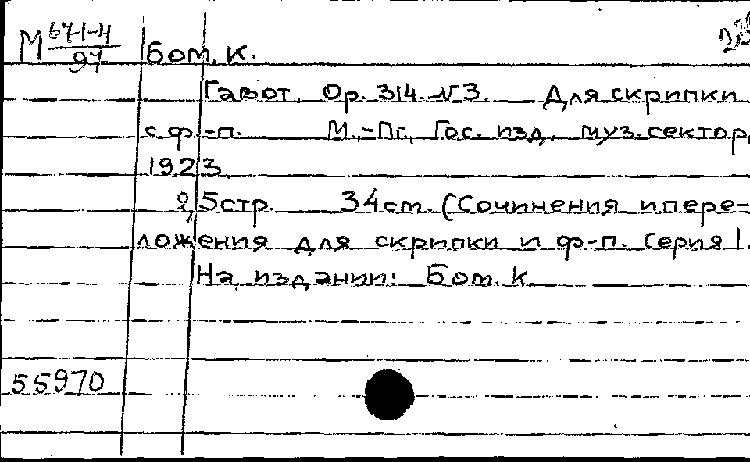 М 67-1-4/97
Бом. К.
Гавот. Ор. 314. №3. Для скрипки
с ф.-п. М.-Пг, Гос. изд. муз. сектор,
1923
2, 5 стр. 34 см. (Сочинения и пере-
ложения для скрипки и ф-п. Серия I.
На издании: Бом. К.
55970